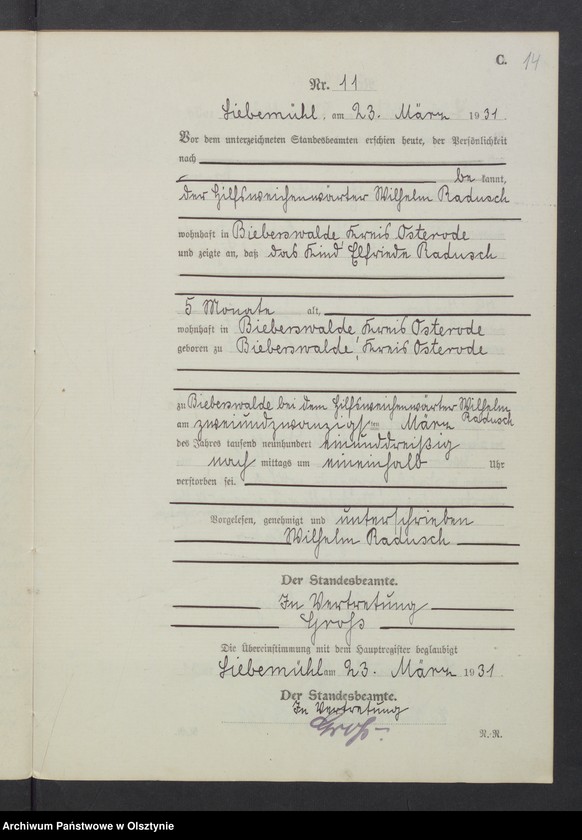 C. 14
Nr. 11
Liebemühl, am 23. März 1931
Vor dem unterzeichneten Standesbeamten erschien heute, der Persönlichkeit
nach
be kannt,
der Hilfsweichenwärter Wilhelm Radusch
wohnhaft in Bieberswalde Kreis Osterode
und zeigte an, daß das Kind Elfriede Radusch
5 Monate alt,
wohnhaft in Bieberswalde Kreis Osterode
geboren zu Bieberswalde, Kreis Osterode
zu Bieberswalde bei dem Hilfsweichenwärter Wilhelm
Radusch
am zweiundzwanzigsten März
des Jahres tausend neunhundert einunddreißig
nach mittags um eineinhalb Uhr
verstorben sei.
Vorgelesen, genehmigt und unterschrieben
Wilhelm Radusch
Der Standesbeamte.
In Vertretung
Groß
Die Übereinstimmung mit dem Hauptregister beglaubigt
Liebemühl am 23. März 1931
Der Standesbeamte.
In Vertretung
Groß
N. N.
Archiwum Państwowe w Olsztynie